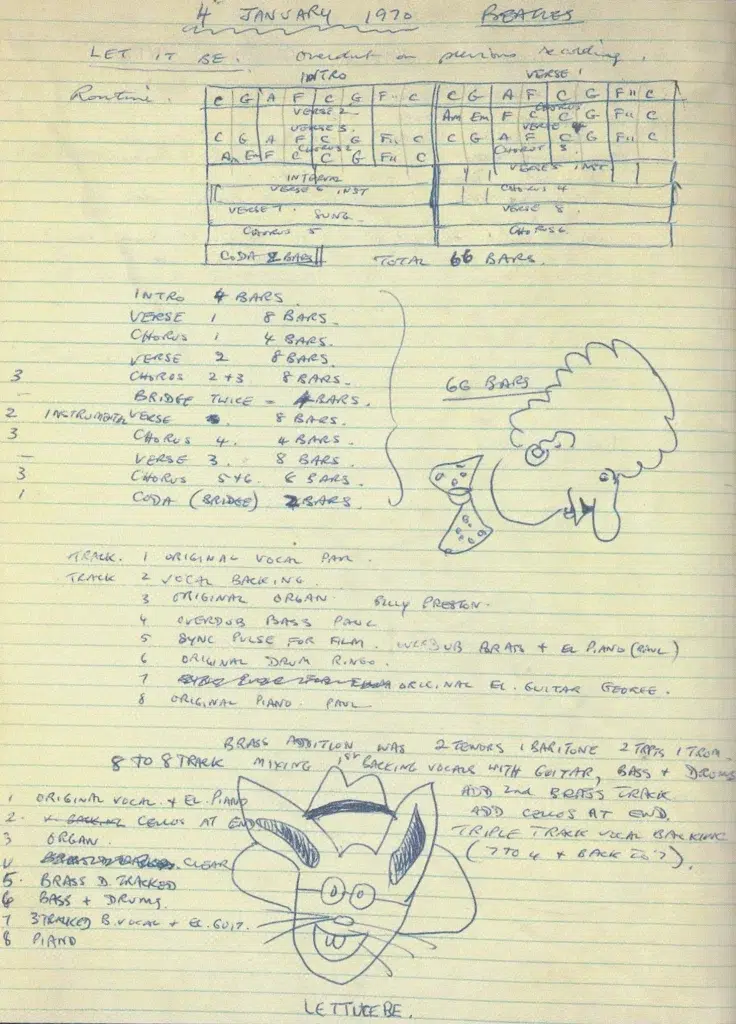 4 JANUARY 1970 BEATLES
LET IT BE. Overdub on previous recording.
INTRO VERSE 1
Routine.
C G A F C G F" C C G A F C G F" C
VERSE 2 Am Em F C C G F" C CHORUS
VERSE 3 VERSE
C G A F C G F" C C G A F C G F" C
Am Em F C C G F" C CHORUS 2 CHORUS 3
VERSE 5 INST
VERSE 6 INST CHORUS 4
VERSE 7 SUNG VERSE 8
CHORUS 5 CHORUS 6
CODA 2 BARS TOTAL 66 BARS.
INTRO 4 BARS.
VERSE 1 8 BARS.
CHORUS 1 4 BARS.
VERSE 2 8 BARS.
3 CHORUS 2+3 8 BARS.
- BRIDGE TWICE = 4 BARS.
2 INSTRUMENTAL VERSE 8 BARS.
3 CHORUS 4. 4 BARS.
- VERSE 3. 8 BARS.
3 CHORUS 5+6. 6 BARS.
1 CODA (BRIDGE) 2 BARS.
66 BARS
TRACK. 1 ORIGINAL VOCAL PAUL.
TRACK 2 VOCAL BACKING.
3 ORIGINAL ORGAN. Billy PRESTON.
4 OVERDUB BASS PAUL
5 SYNC PULSE FOR FILM. OVERDUB BRASS + EL PIANO (PAUL)
6 ORIGINAL DRUM RINGO.
7 ORIGINAL EL. GUITAR GEORGE.
8 ORIGINAL PIANO. PAUL
BRASS ADDITION WAS 2 TENORS 1 BARITONE 2 TRPTS 1 TROM.
8 TO 8 TRACK MIXING 1ST BACKING VOCALS WITH GUITAR, BASS + DRUMS
ADD 2nd BRASS TRACK
ADD CELLOS AT END.
TRIPLE TRACK VOCAL BACKING
(7 TO 4 + BACK TO 7).
1 ORIGINAL VOCAL + EL. PIANO
2. CELLOS AT END
3 ORGAN.
4 CLEAR
5. BRASS D. TRACKED
6 BASS + DRUMS.
7 3 TRACKED B. VOCAL + EL. GUIT.
8 PIANO
LETTUCE BE.